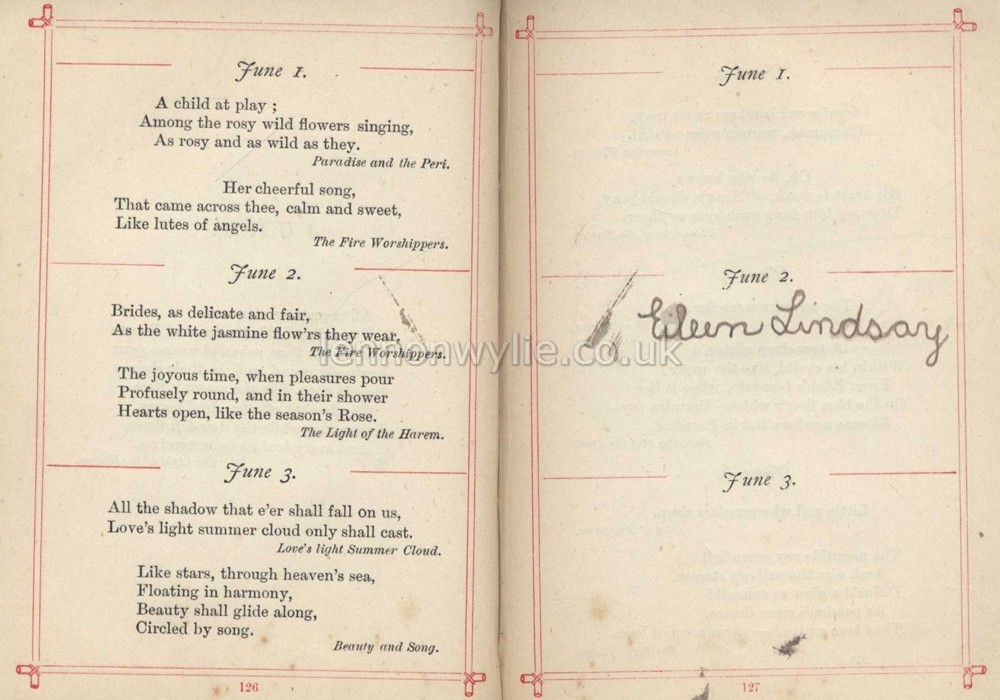 June 1.
A child at play ;
Among the rosy wild flowers singing,
As rosy and as wild as they.
Paradise and the Peri.
Her cheerful song,
That came across thee, calm and sweet,
Like lutes of angels.
The Fire Worshippers.
June 2.
Brides, as delicate and fair,
As the white jasmine flow'rs they wear.
The Fire Worshippers.
The joyous time, when pleasures pour
Profusely round, and in their shower
Hearts open, like the season's Rose.
The Light of the Harem.
June 3.
All the shadow that e'er shall fall on us,
Love's light summer cloud only shall cast.
Love's light Summer Cloud.
Like stars, through heaven's sea,
Floating in harmony,
Beauty shall glide along,
Circled by song.
Beauty and Song.
126
June 1.
June 2.
Eileen Lindsay
June 3.
127
lennonwylie.co.uk